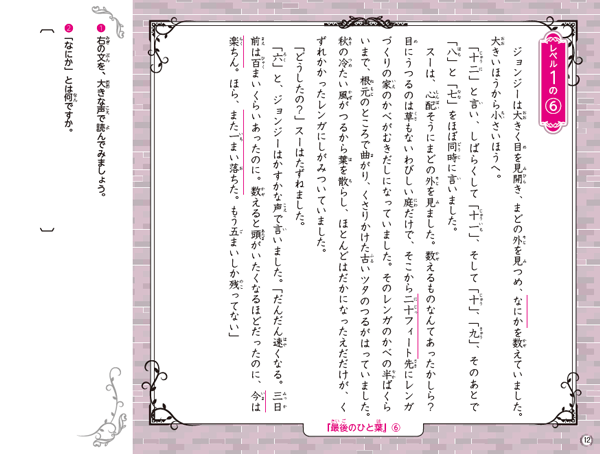 レベル1の⑥
ジョンジーは大きく目を見開き、まどの外を見つめ、なにかを数えていました。
大きいほうから小さいほうへ。
「十二」と言い、しばらくして「十一」、そして「十」、「九」、そのあとで
「八」と「七」をほぼ同時に言いました。
スーは、心配そうにまどの外を見ました。数えるものなんてあったかしら?
目にうつるのは草もないわびしい庭だけで、そこから二十フィート先にレンガ
づくりの家のかべがむきだしになっていました。そのレンガのかべの半ばくら
いまで、根元のところで曲がり、くさりかけた古いツタのつるがはっていました。
秋の冷たい風がつるから葉を散らし、ほとんどはだかになったえだだけが、く
ずれかかったレンガにしがみついていました。
「どうしたの?」スーはたずねました。
「六」と、ジョンジーはかすかな声で言いました。「だんだん速くなる。三日
前は百まいくらいあったのに。数えると頭がいたくなるほどだったのに、今は
楽ちん。ほら、また一まい落ちた。もう五まいしか残ってない」
『最後のひと葉』⑥
❶ 右の文を、大きな声で読んでみましょう。
❷ 「なにか」とは何ですか。
12